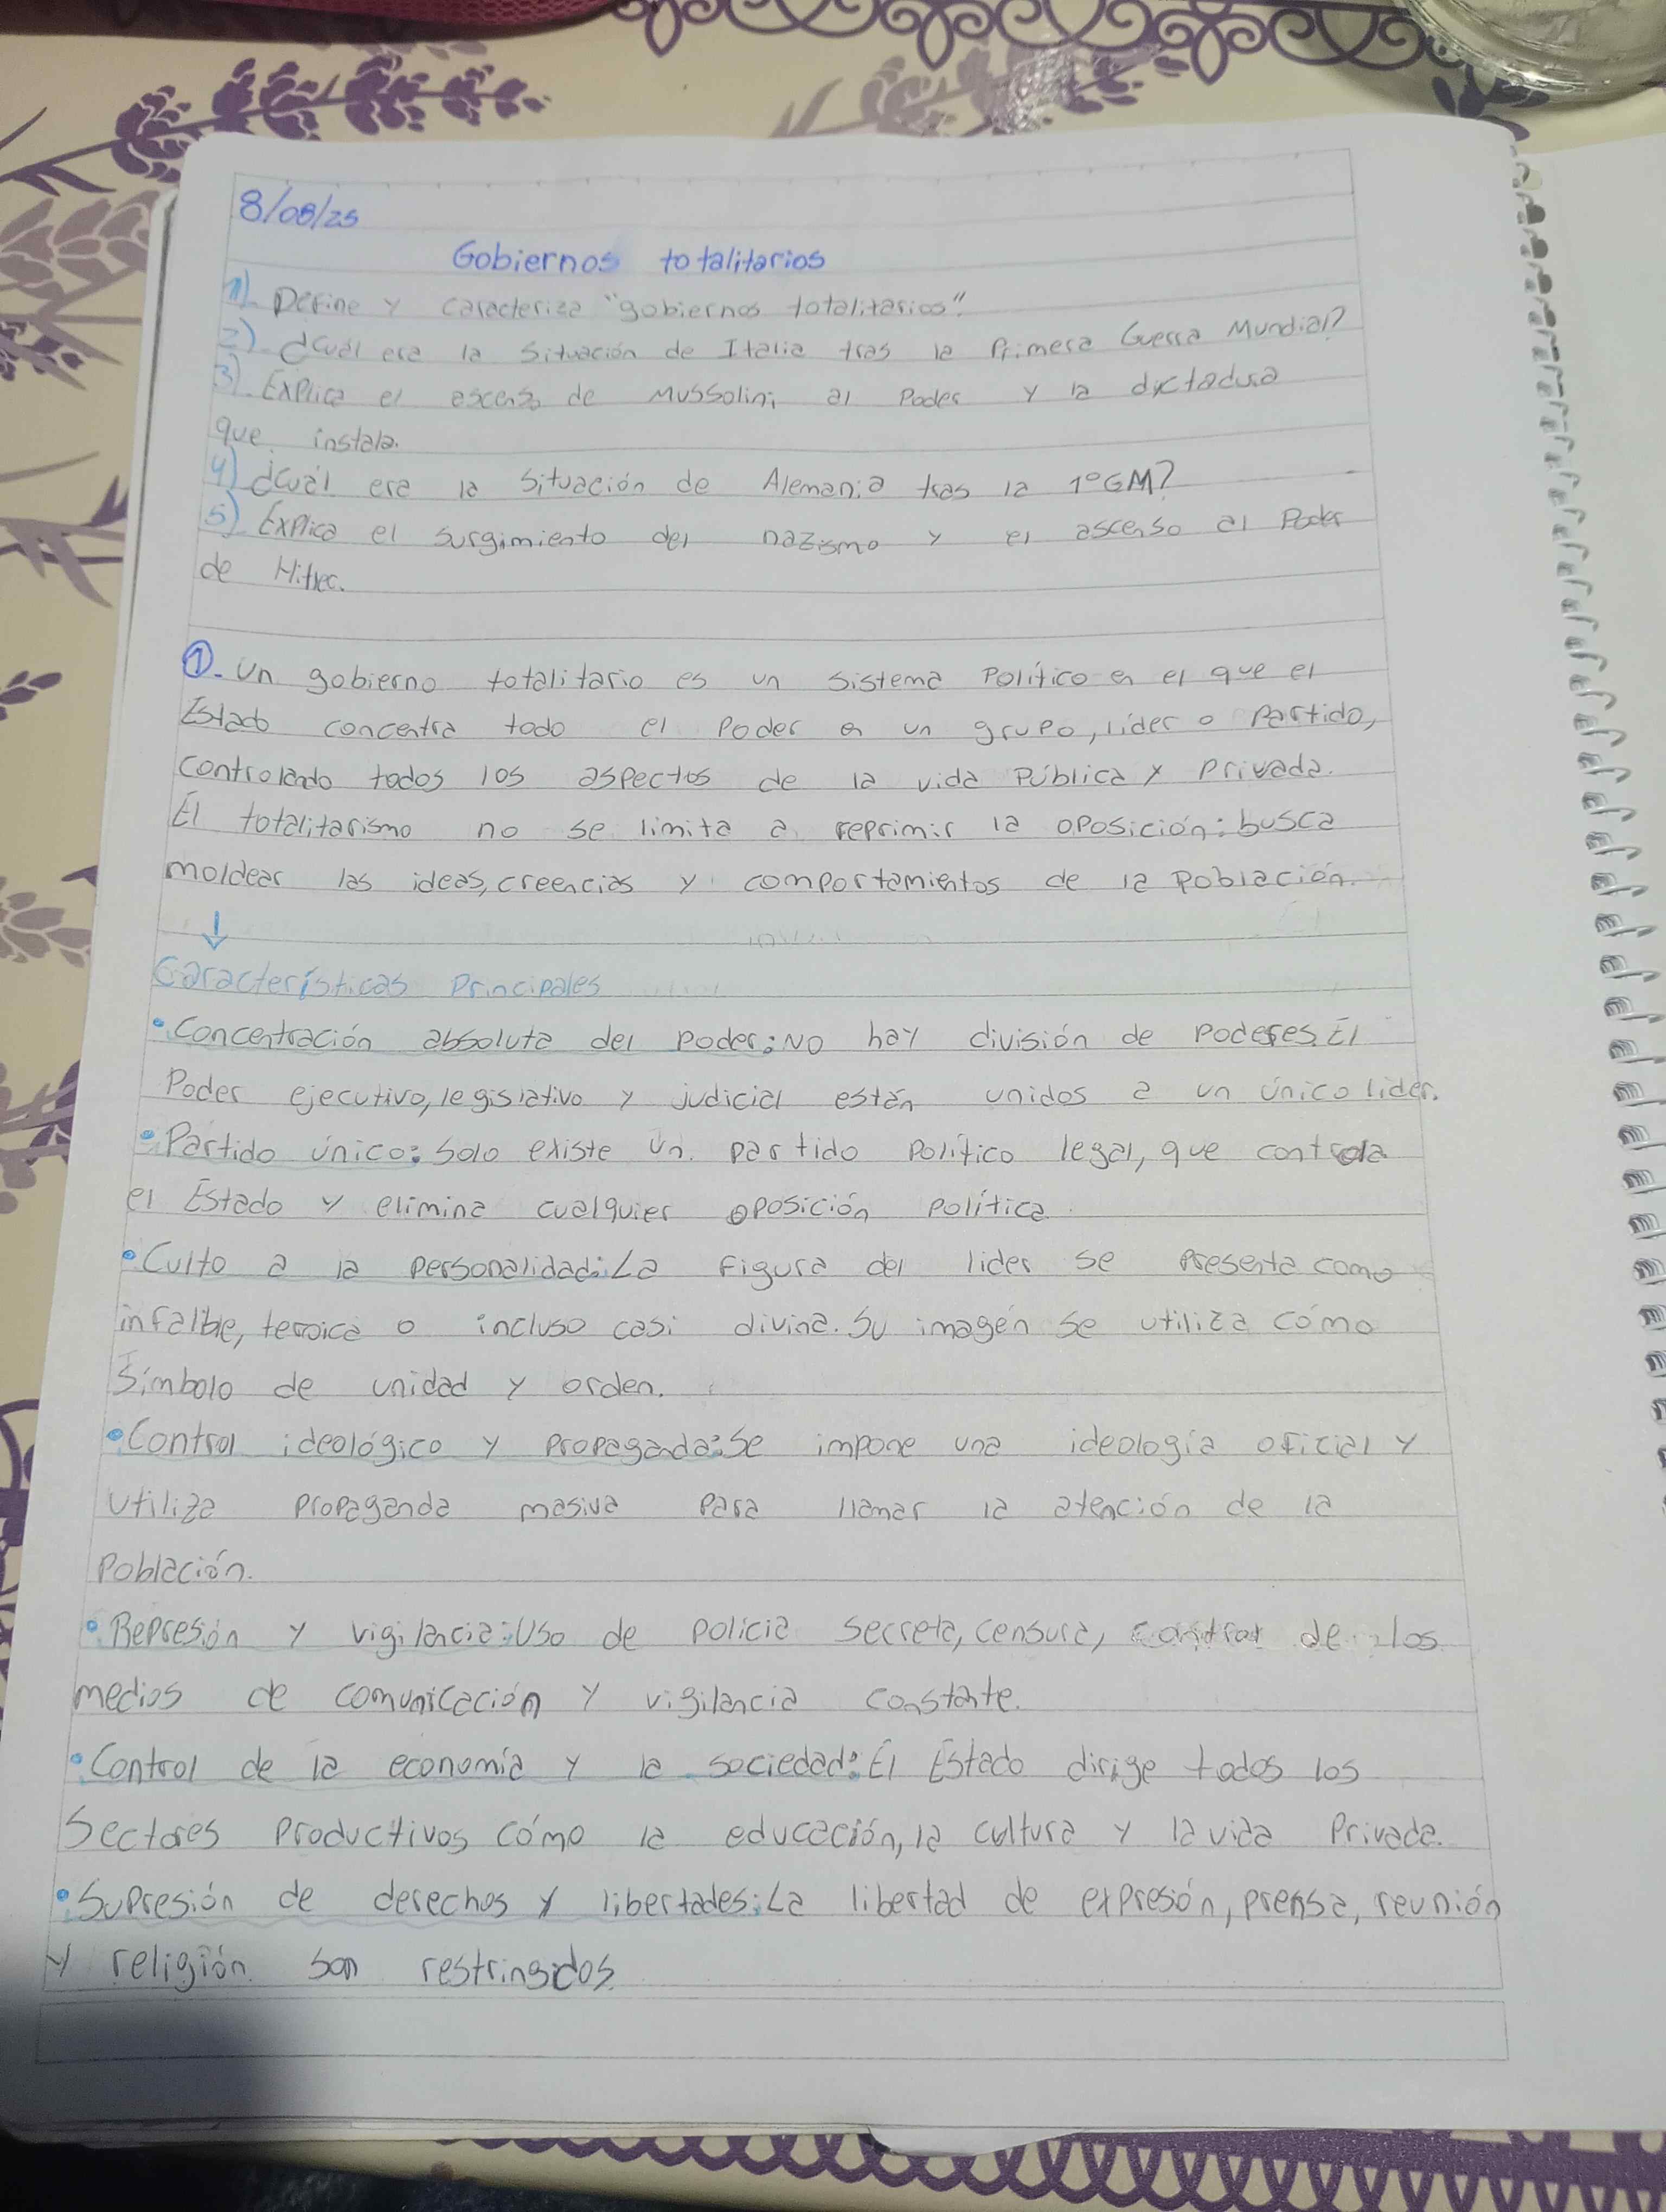 8/08/25
Gobiernos totalitarios
1)- Define y caracteriza "gobiernos totalitarios".
2)- ¿Cuál era la situación de Italia tras la Primera Guerra Mundial?
3)- Explica el ascenso de Mussolini al Poder y la dictadura
que instala.
4)- ¿Cuál era la situación de Alemania tras la 1°GM?
5)- Explica el surgimiento del nazismo y el ascenso al Poder
de Hitler.
①- Un gobierno totalitario es un sistema Político en el que el
Estado concentra todo el Poder en un grupo, líder o Partido,
controlando todos los aspectos de la vida Pública y Privada.
El totalitarismo no se limita a reprimir la oposición: busca
moldear las ideas, creencias y comportamientos de la Población.
↓
Características Principales
• Concentración absoluta del poder: No hay división de poderes. El
Poder ejecutivo, legislativo y judicial están unidos a un único lider.
• Partido único: Solo existe un partido Político legal, que controla
el Estado y elimina cualquier oposición Política.
• Culto a la Personalidad: La figura del lider se presenta como
infalible, heroica o incluso casi divina. Su imagén se utiliza cómo
Símbolo de unidad y orden.
• Control ideológico y propaganda: Se impone una ideología oficial y
utiliza propaganda masiva Para llamar la atención de la
Población.
• Represión y vigilancia: Uso de policia secreta, censura, control de los
medios de comunicación y vigilancia constante.
• Control de la economía y la sociedad: El Estado dirige todos los
Sectores Productivos cómo la educación, la cultura y la vida Privada.
• Supresión de derechos y libertades: La libertad de expresión, prensa, reunión
y religión son restringidos.